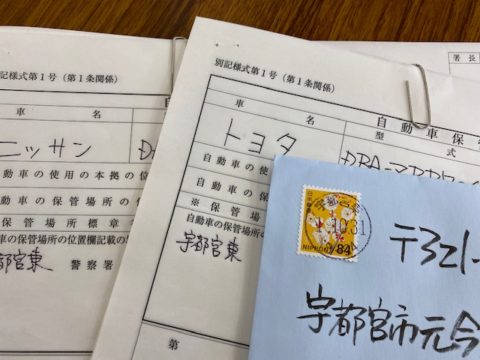 別記様式第1号(第1条関係)
車　名
ニッサン
自動車の使用の本拠の位
自動車の保管場所の位
保管場所標章
車の保管場所の位置欄記載の
都宮東　警察署
署長
別記様式第1号(第1条関係)
自動車保
車　名
型　式
トヨタ
DBA-
自動車の使
自動車の保
※保管場
自動車の保管場所の
宇都宮東
第
NIPPON 84
〒321-
宇都宮市元今